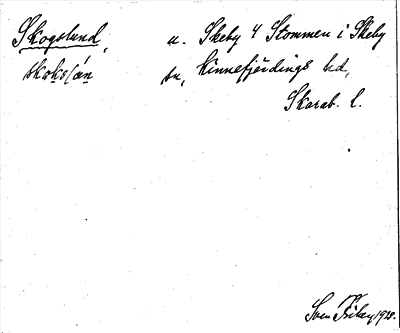 Skogslund, u. Skeby 4 Stommen i Skeby
sn, Kinnefjerdings hd,
Skarab. l.
Sven 1928.